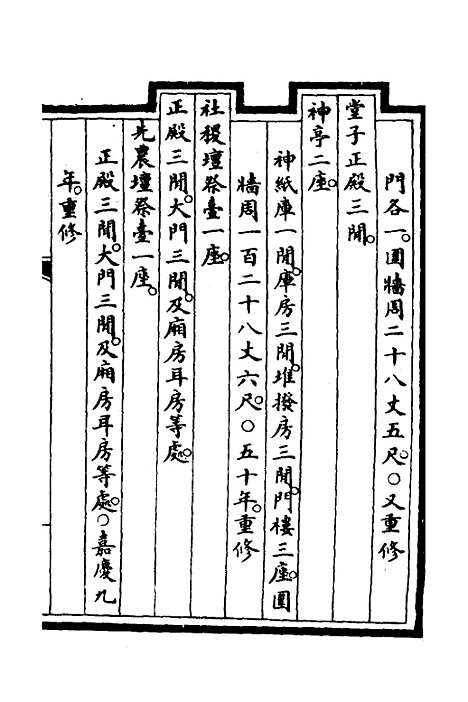 門各一。圍牆周二十八丈五尺。○又重修
堂子正殿三間。
神亭二座。
神紙庫一間。庫房三間。堆撥房三間。門樓三座。圍
牆周一百二十八丈六尺。○五十年。重修
社稷壇祭臺一座。
正殿三間。大門三間。及廂房耳房等處。
先農壇祭臺一座。
正殿三間。大門三間。及廂房耳房等處。○嘉慶九
年。重修